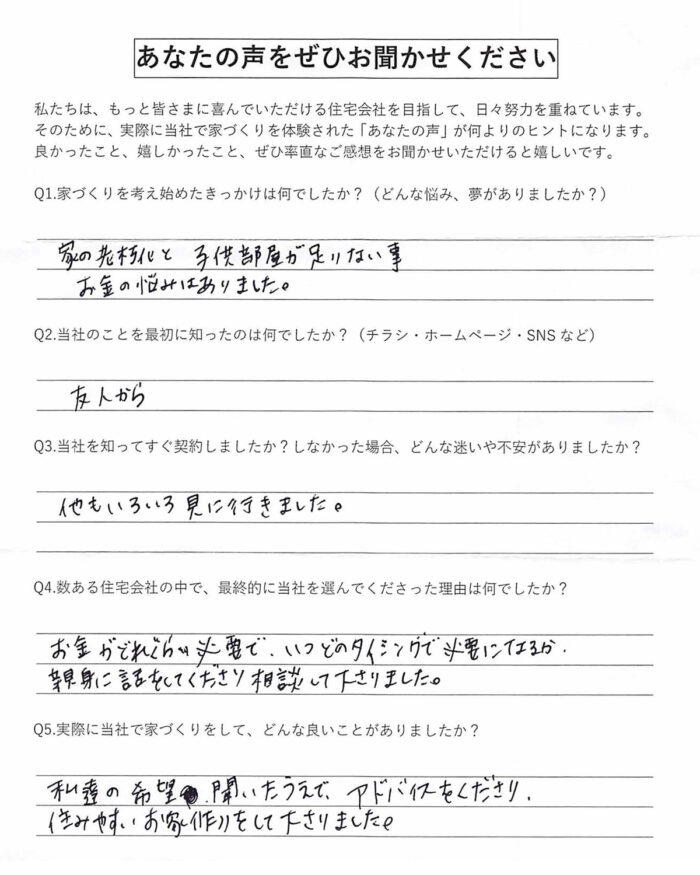 あなたの声をぜひお聞かせください
私たちは、もっと皆さまに喜んでいただける住宅会社を目指して、日々努力を重ねています。
そのために、実際に当社で家づくりを体験された「あなたの声」が何よりのヒントになります。
良かったこと、嬉しかったこと、ぜひ率直なご感想をお聞かせいただけると嬉しいです。
Q1.家づくりを考え始めたきっかけは何でしたか？（どんな悩み、夢がありましたか？）
家の老朽化と 子供部屋が足りない事
お金の悩みはありました。
Q2.当社のことを最初に知ったのは何でしたか？（チラシ・ホームページ・SNSなど）
友人から
Q3.当社を知ってすぐ契約しましたか？しなかった場合、どんな迷いや不安がありましたか？
他もいろいろ見に行きました。
Q4.数ある住宅会社の中で、最終的に当社を選んでくださった理由は何でしたか？
お金がどれぐらい必要で、いつどのタイミングで必要になるか、
親身に話をしてくださり相談して下さりました。
Q5.実際に当社で家づくりをして、どんな良いことがありましたか？
私達の希望 聞いたうえで、アドバイスをくださり、
住みやすいお家作りをして下さりました。